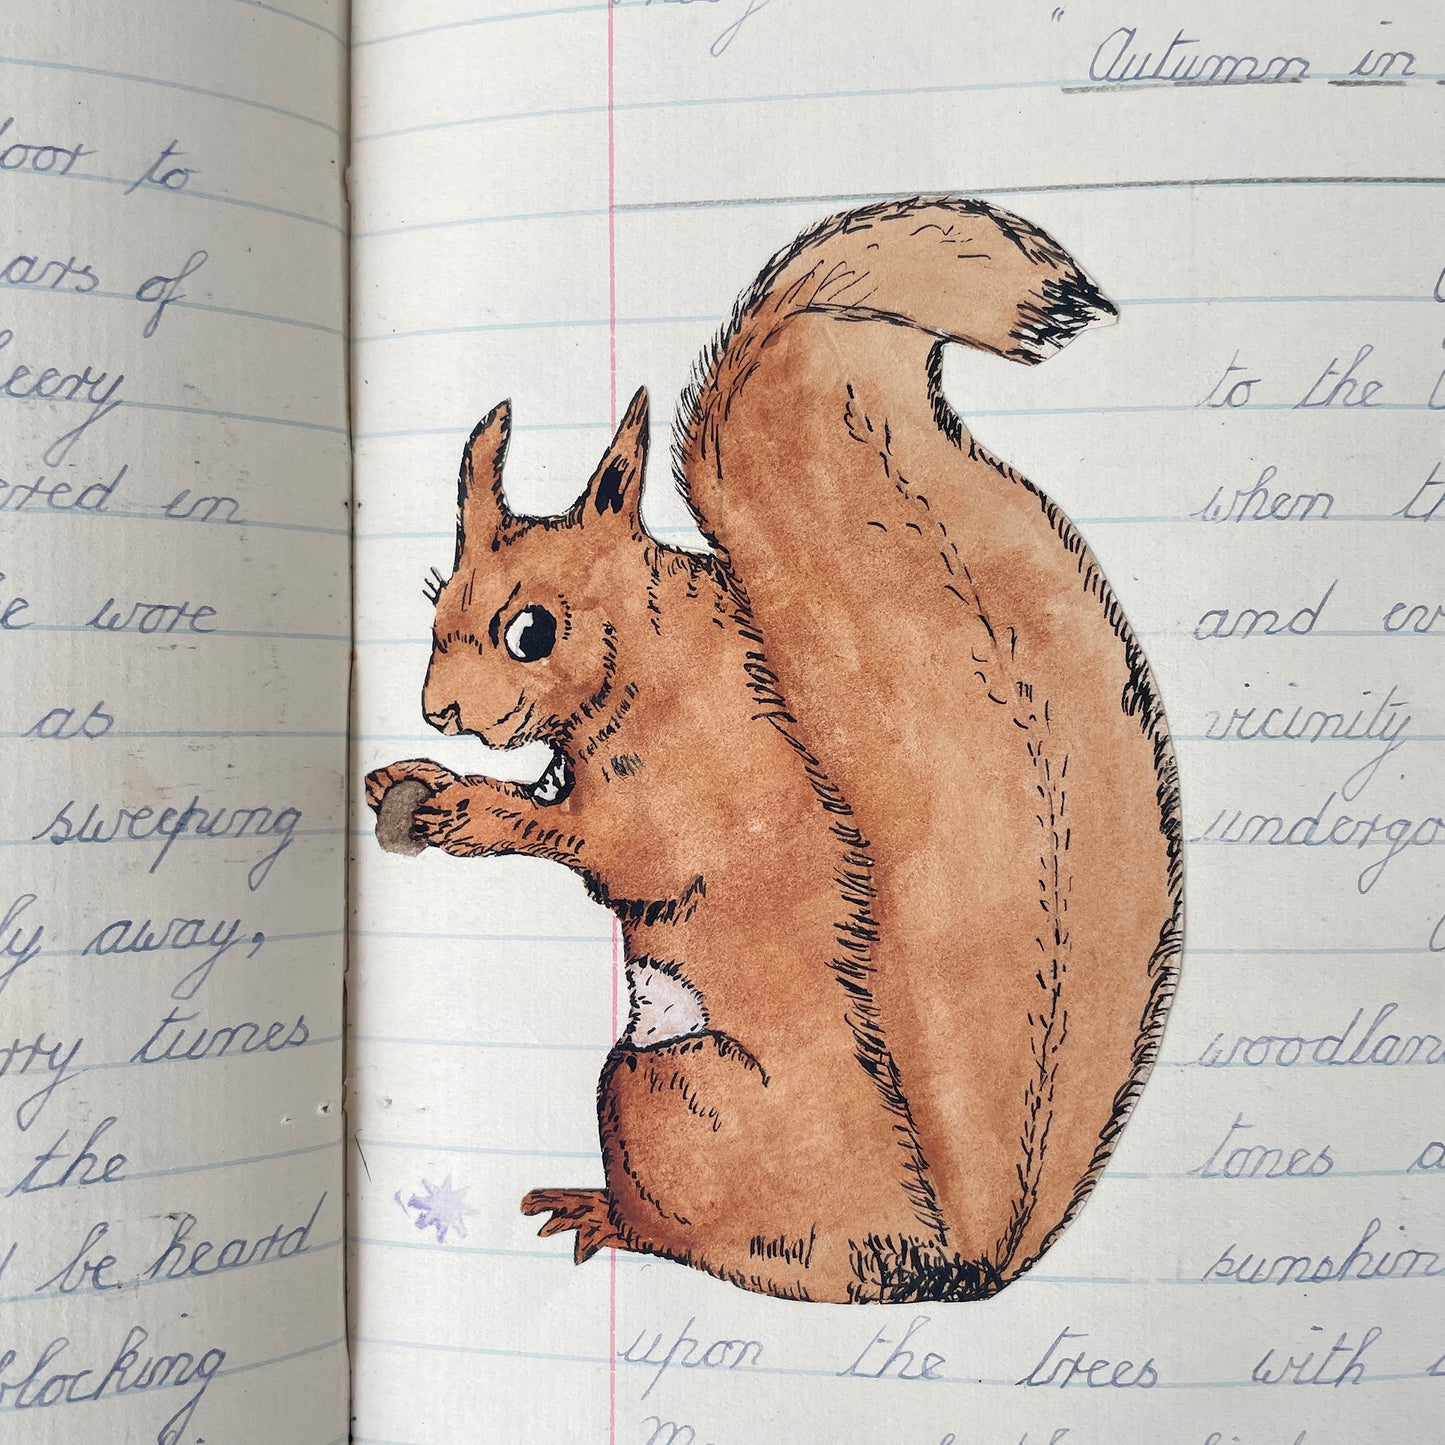 door to
ars of
heery
ered in
e wore
as
sweeping
ly away,
rry tunes
the
be heard
blocking
"Autumn in
to the
when th
and ev
vicinity
undergo
woodlan
tones a
sunshin
upon the trees with